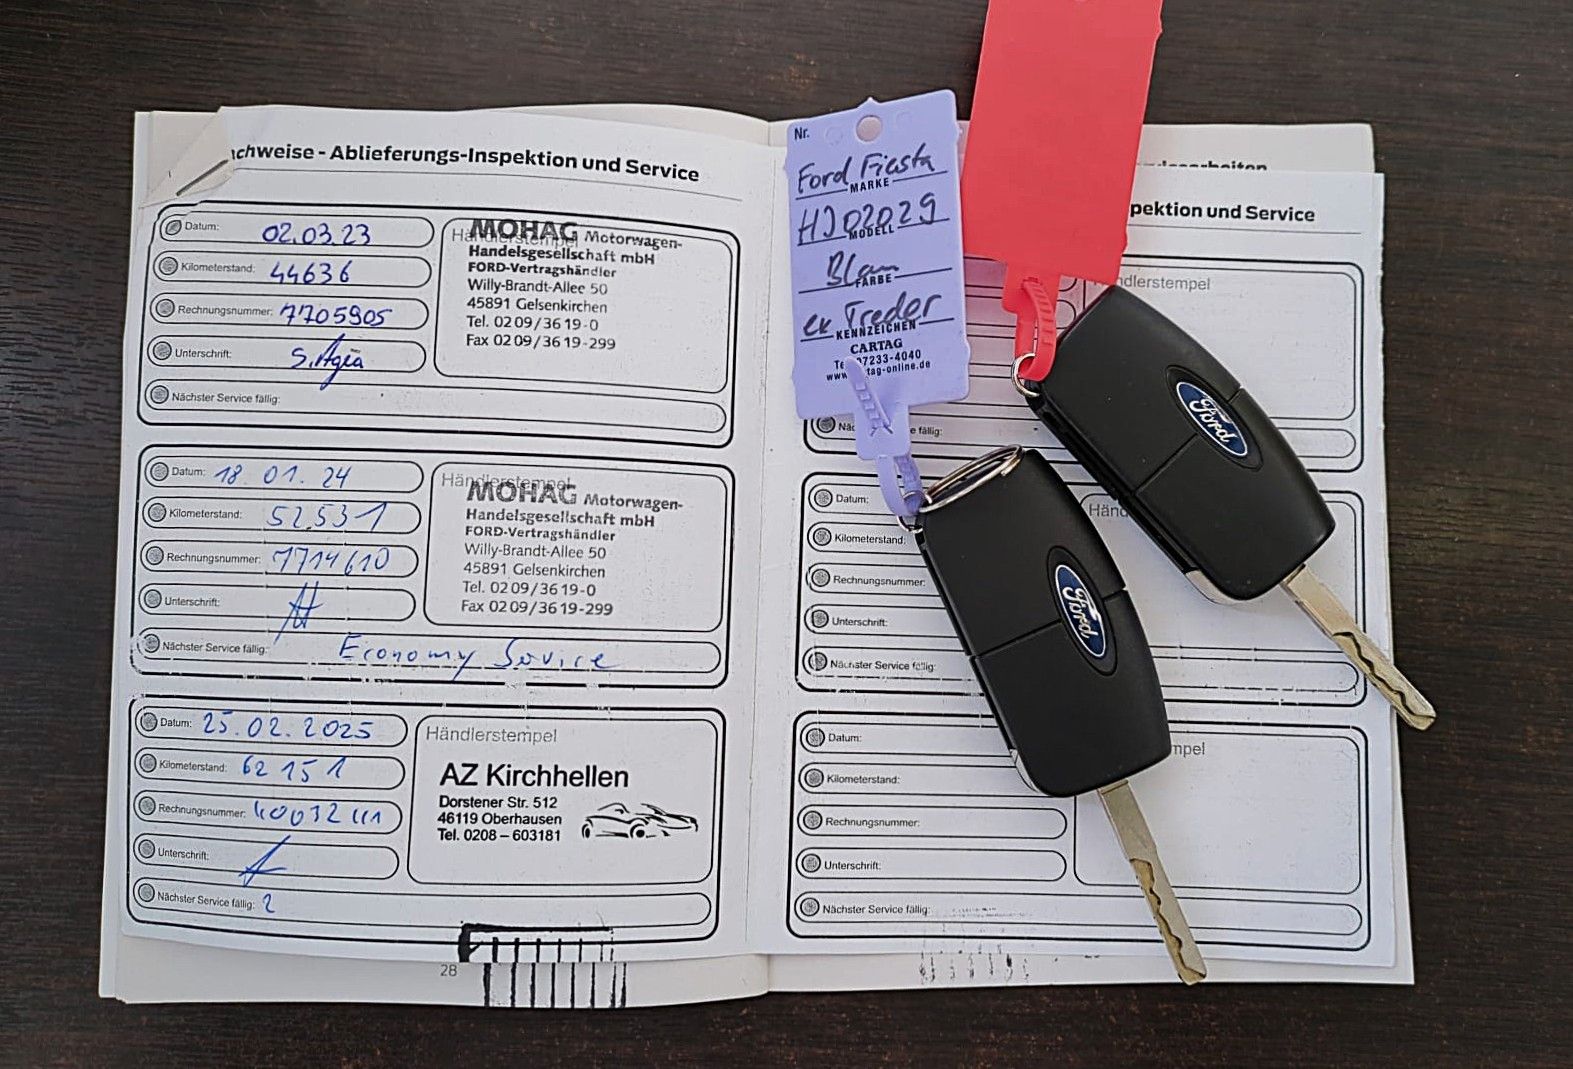 chweise - Ablieferungs-Inspektion und Service
Datum: 02.03.23
Kilometerstand: 44636
Rechnungsnummer: 7705905
Unterschrift:
Nächster Service fällig:
Händlerstempel
MOHAG Motorwagen-
Handelsgesellschaft mbH
FORD-Vertragshändler
Willy-Brandt-Allee 50
45891 Gelsenkirchen
Tel. 02 09/36 19-0
Fax 02 09/36 19-299
Datum: 18.01.24
Kilometerstand: 52.531
Rechnungsnummer: 7714610
Unterschrift:
Nächster Service fällig: Economy Service
Händlerstempel
MOHAG Motorwagen-
Handelsgesellschaft mbH
FORD-Vertragshändler
Willy-Brandt-Allee 50
45891 Gelsenkirchen
Tel. 02 09/36 19-0
Fax 02 09/36 19-299
Datum: 25.02.2025
Kilometerstand: 62151
Rechnungsnummer:
Unterschrift:
Nächster Service fällig: 2
Händlerstempel
AZ Kirchhellen
Dorstener Str. 512
46119 Oberhausen
Tel. 0208 – 603181
28
Nr.
Ford Fiesta
MARKE
HJ02029
MODELL
Blau
FARBE
ex Treder
KENNZEICHEN
CARTAG
07233-4040
tag-online.de
pektion und Service
Händlerstempel
e fällig:
Datum:
Kilometerstand:
Rechnungsnummer:
Unterschrift:
Nächster Service fällig:
Händ
Datum:
Kilometerstand:
Rechnungsnummer:
Unterschrift:
Nächster Service fällig:
mpel
Ford
Ford